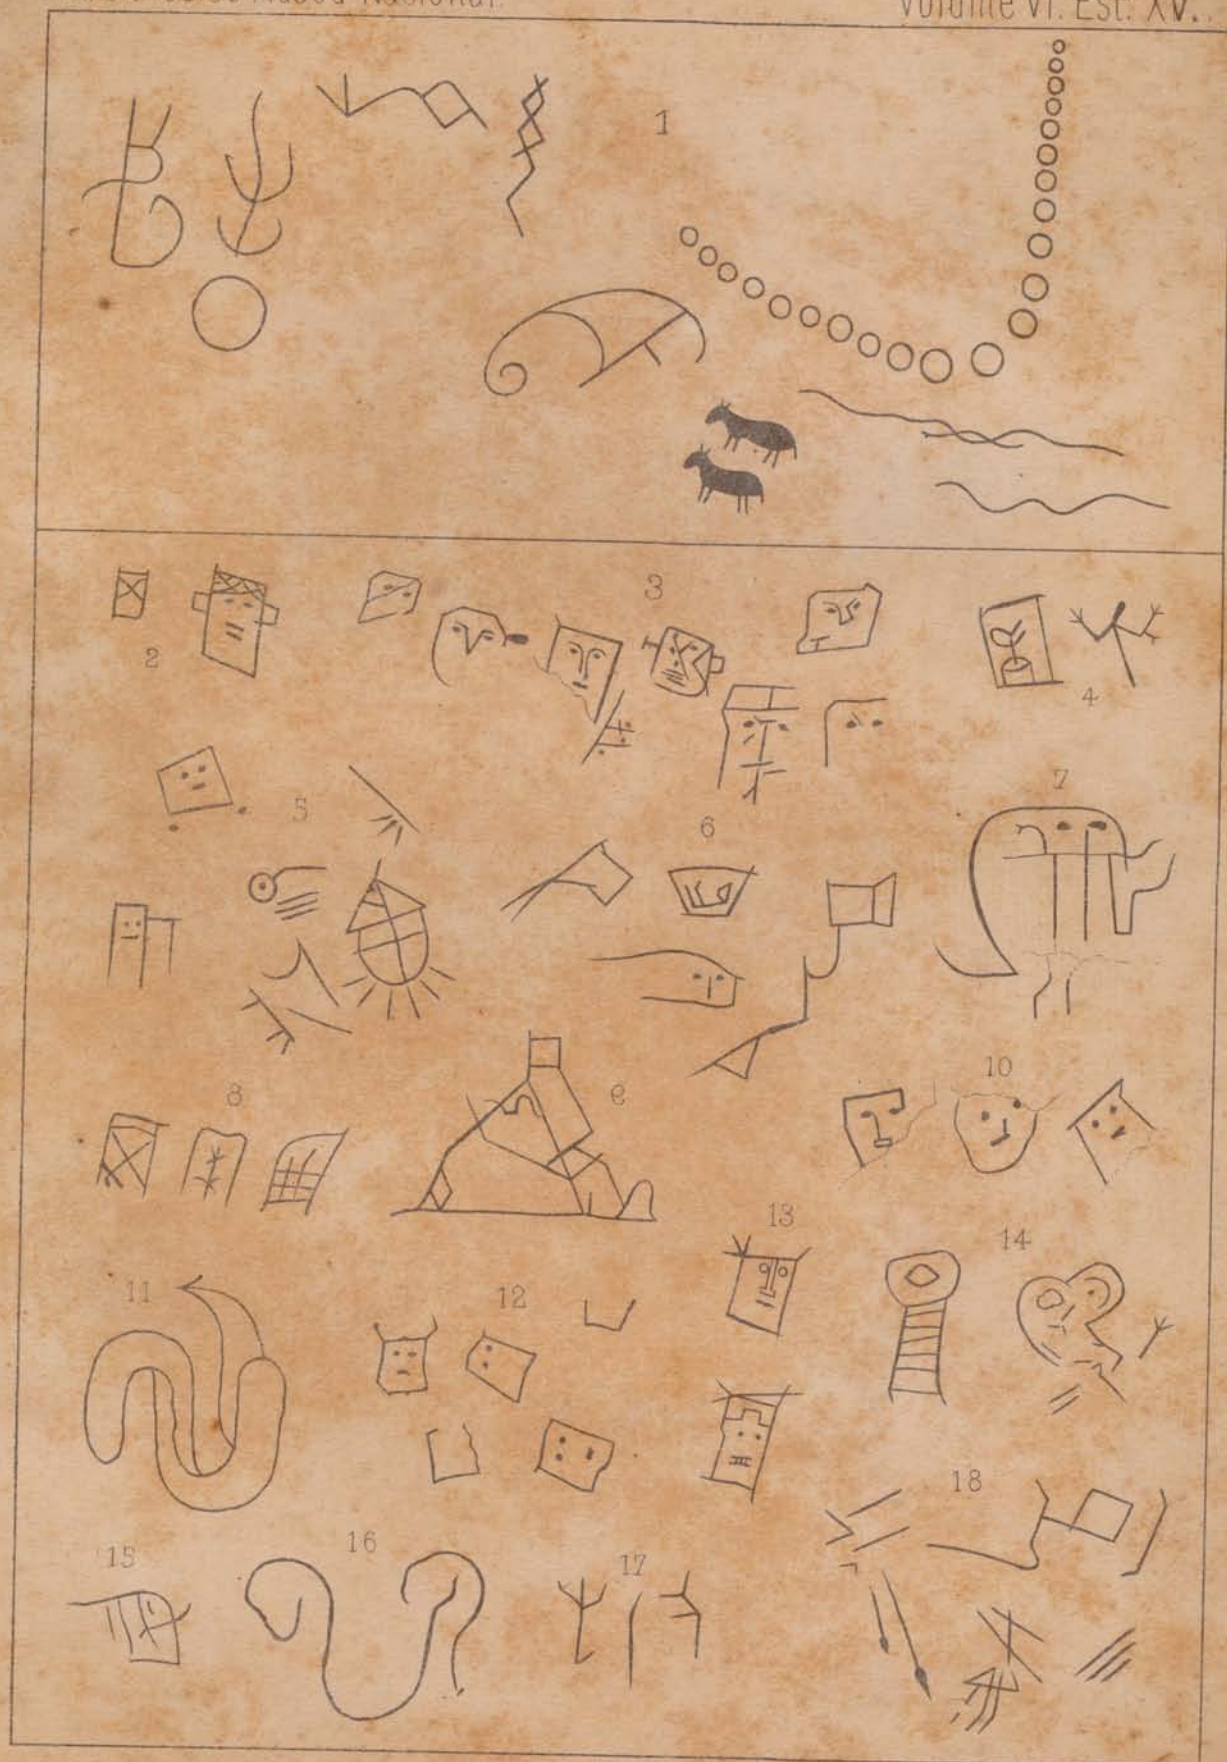 Museu Nacional.
Volume VI. Est. XV.
1
2
3
4
5
6
7
8
9
10
11
12
13
14
15
16
17
18